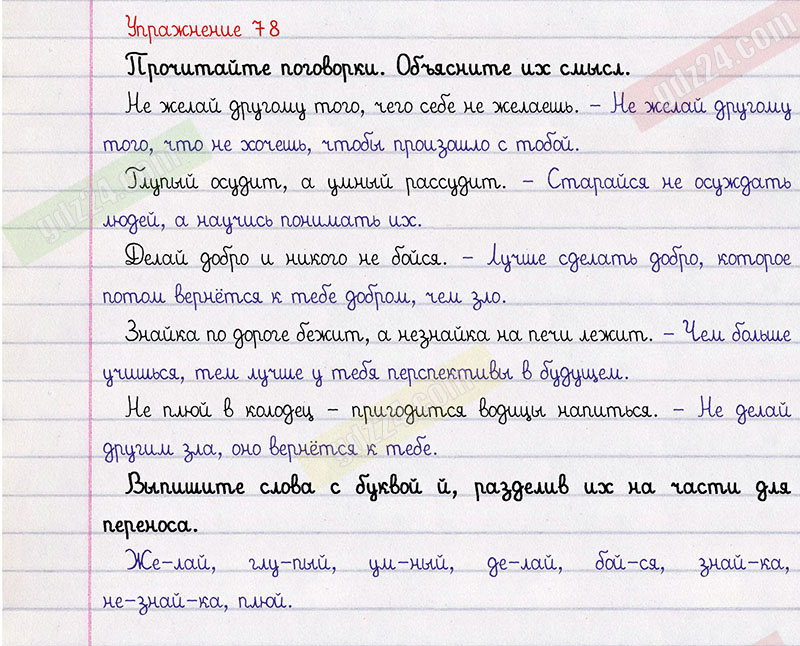 Упражнение 78
gdz24.com
Прочитайте поговорки. Объясните их смысл.
Не желай другому того, чего себе не желаешь. – Не желай другому
того, что не хочешь, чтобы произошло с тобой.
Глупый осудит, а умный рассудит. – Старайся не осуждать
gdz24.com
людей, а научись понимать их.
Делай добро и никого не бойся. – Лучше сделать добро, которое
потом вернётся к тебе добром, чем зло.
Знайка по дороге бежит, а незнайка на печи лежит. – Чем больше
учишься, тем лучше у тебя перспективы в будущем.
Не плюй в колодец – пригодится водицы напиться. – Не делай
gdz24.com
другим зла, оно вернётся к тебе.
Выпишите слова с буквой й, разделив их на части для
переноса.
Же-лай, глу-пый, ум-ный, де-лай, бой-ся, знай-ка,
не-знай-ка, плюй.